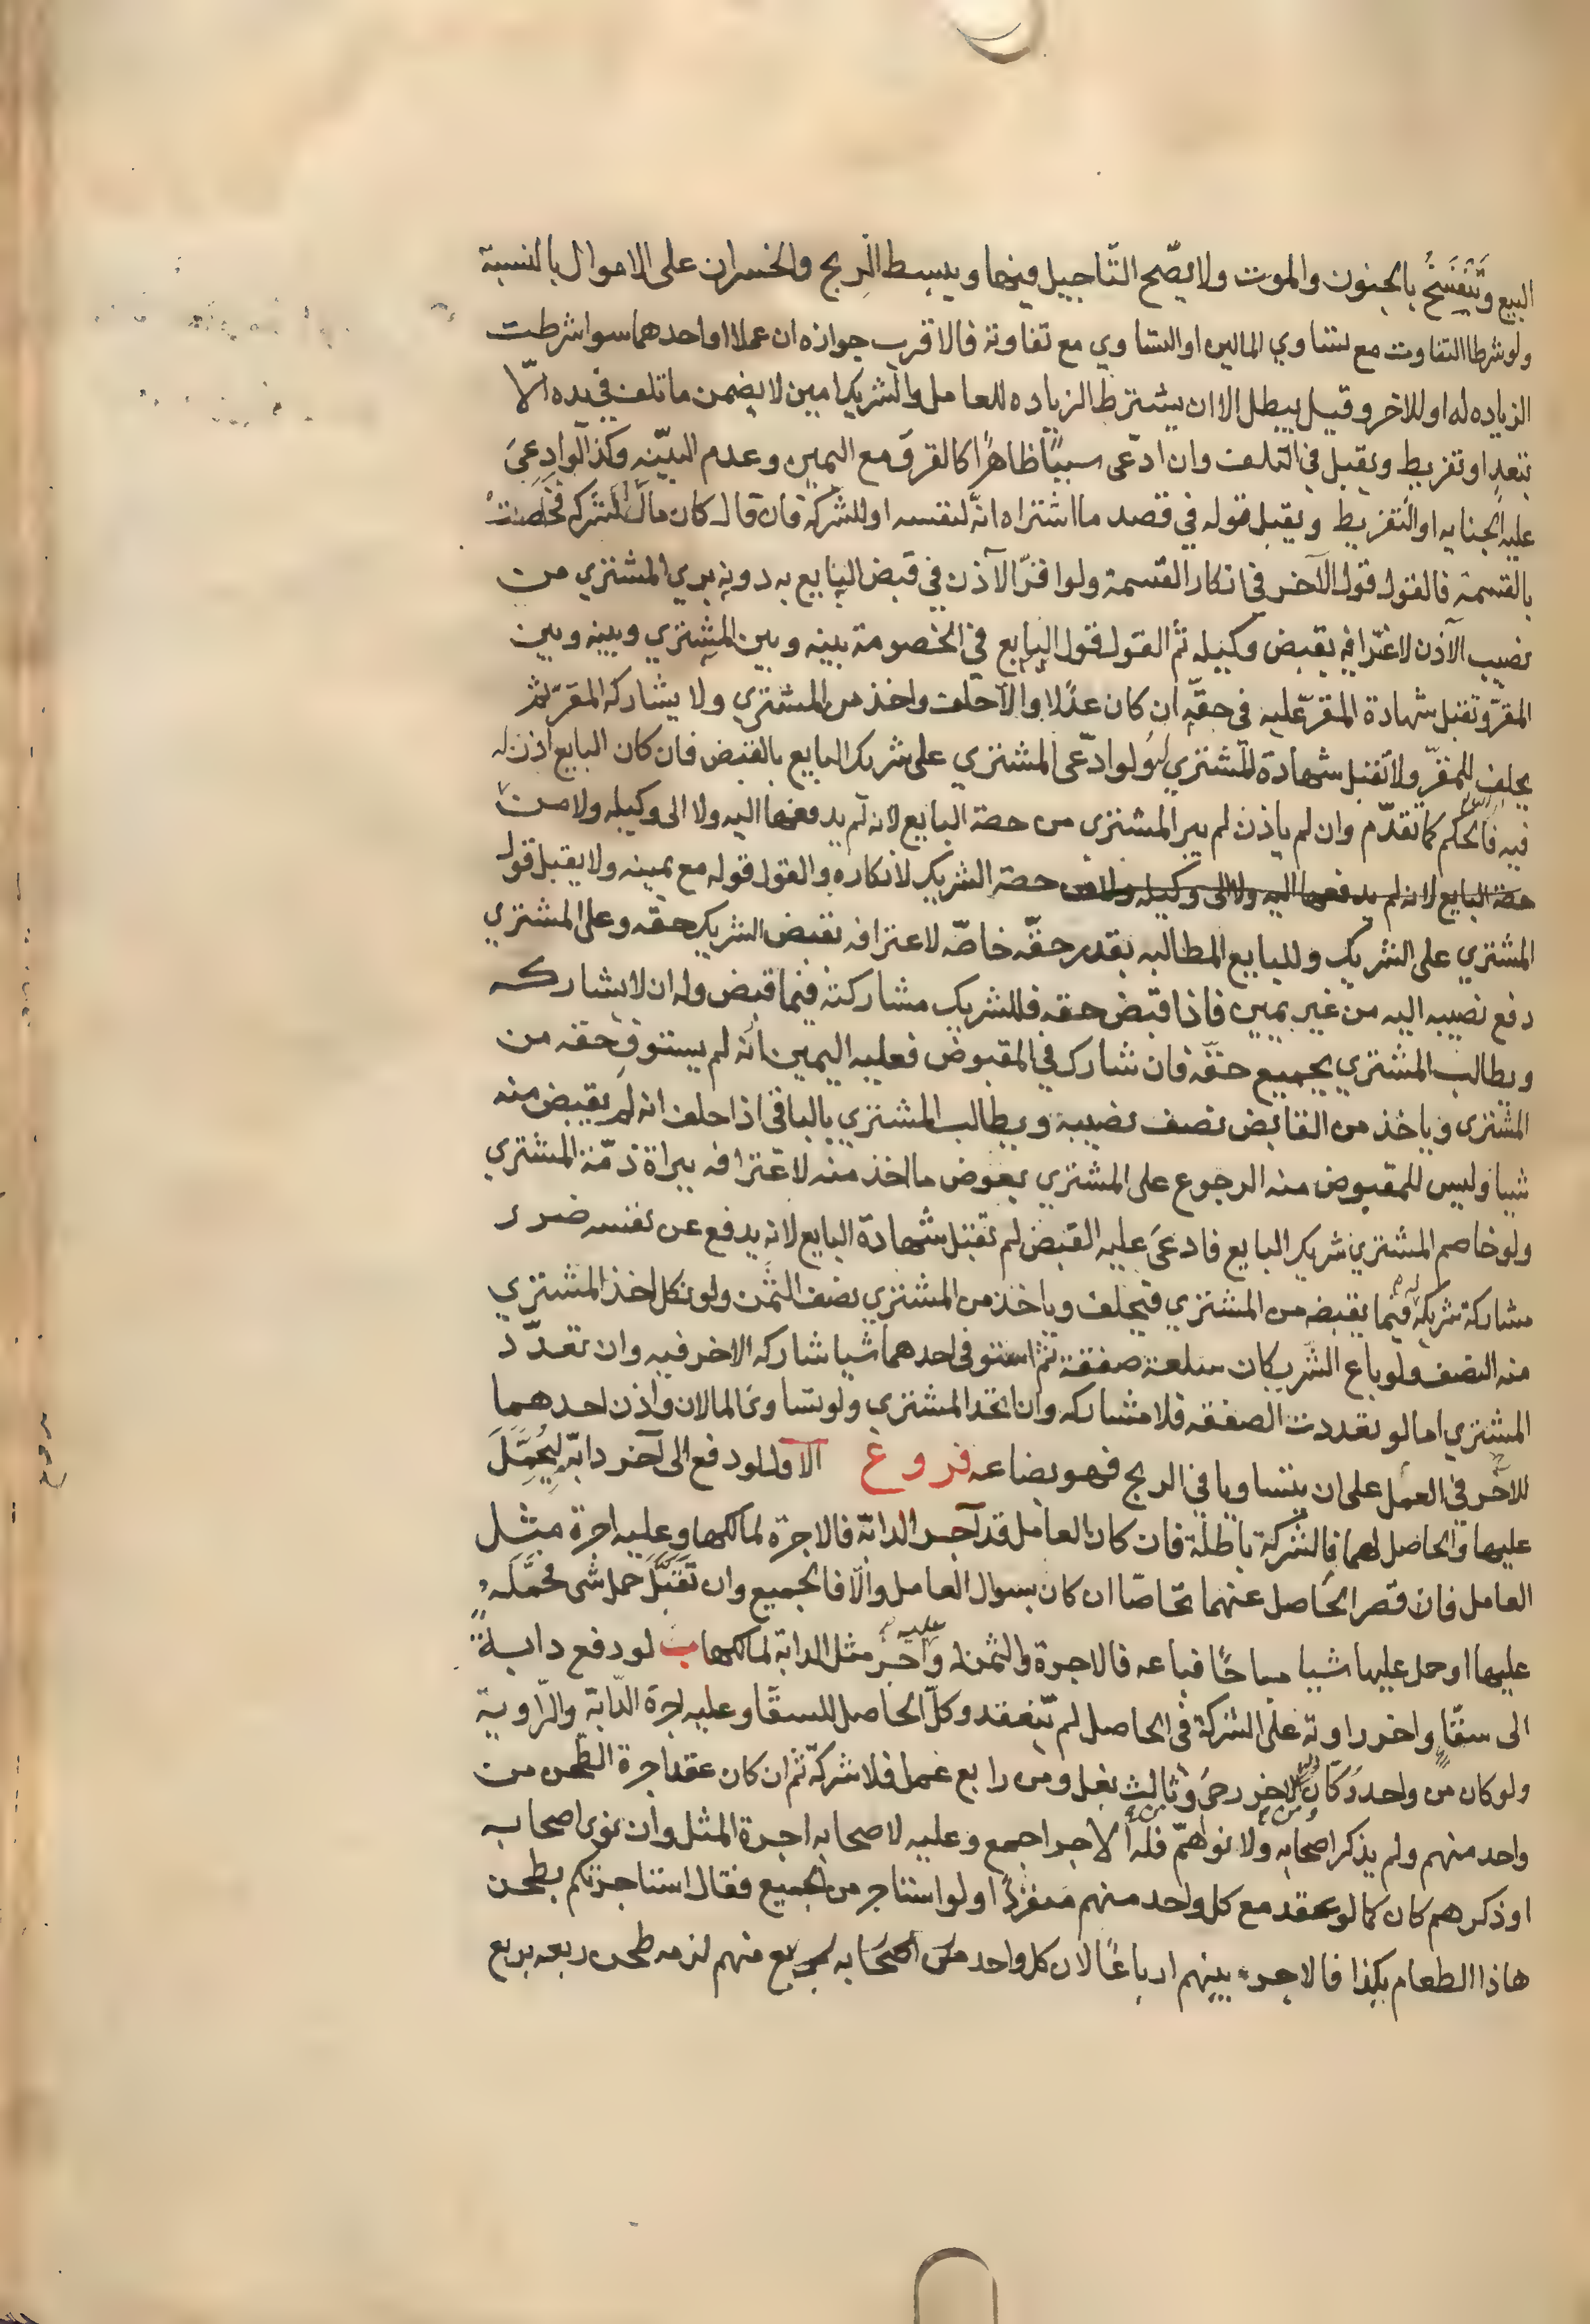 البيع وتنفسخ بالجنون والموت ولا يصّح التاجيل فيها ويبسط الربح والخسران على الاموال بالنسبة
ولو شرطا التفاوت مع تساوي المالين او التساوي مع تفاوته فالاقرب جوازه ان عملا او احدهما سوا شرطت
الزياده له او للاخر وقيل يبطل الا ان يشترط الزياده للعامل والشريك امين لا يضمن ما تلف في يده الّا
بتعدٍ او تفريط ويقبل في التلف وان ادّعى سببًا ظاهرًا كالغرق مع اليمين وعدم البيّنه وكذا لوادعى
عليه الجنايه او التفريط ويقبل قوله في قصد ما اشتراه انّه لنفسه او للشركة فان قال كان مال الشركه فخلصت
بالقسمة فالقول قول الآخر في انكار القسمة ولو اقرّ الآذن في قبض البايع به دونه بري المشتري من
نصيب الآذن لاعترافه بقبض وكيله ثم القول قول البايع في الخصومة بينه وبين المشتري وبينه وبين
المقرّ وتقبل شهادة المقرّ عليه في حقّه ان كان عدلا والّا حلف واخذ من المشتري ولا يشاركه المقرّ ثم
يحلف للمقرّ ولا تقبل شهادة المشتري له ولو ادّعى المشتري على شريك البايع بالقبض فان كان البايع اذن له
فيه فالحكم كما تقدّم وان لم ياذن لم يبر المشتري من حصة البايع لانه لم يدفعها اليه ولا الى وكيله ولا من
حصة البايع لانه لم يدفعها اليه ولا الى وكيله ولا من حصة الشريك لانكاره والقول قوله مع يمينه ولا يقبل قول
المشتري على الشريك وللبايع المطالبه بقدر حقّه خاصّه لاعترافه بقبض الشريك حقه وعلى المشتري
دفع نصيبه اليه من غير يمين فاذا قبض حقه فللشريك مشاركته فيما قبض وله ان لا يشاركه
ويطالب المشتري بجميع حقّه فان شارك في المقبوض فعليه اليمين انّه لم يستوف حقه من
المشترى وياخذ من القابض نصف نصيبه ويطالب المشتري بالباقى اذا حلف انه لم يقبض منه
شيا وليس للمقبوض منه الرجوع على المشتري بعوض ما اخذ منه لاعترافه ببراة ذمّة المشتري
ولو خاصم المشتري شريك البايع فادعى عليه القبض لم تقبل شهادة البايع لانه يدفع عن نفسه ضرر
مشاركة شريكه فيما يقبضه من المشتري فيحلف وياخذ من المشتري نصف الثمن ولو نكل اخذ المشتري
منه النصف ولو باع الشريكان سلعة صفقة ثم استوفى احدهما شيا شاركه الاخر فيه وان تعدّد
المشتري اما لو تعددت الصفقه فلا مشاركه وان اتحد المشتري ولو تساوى المالان واذن احدهما
للاخر في العمل على ان يتساويا في الربح فهو بضاعه فروع الاول لو دفع الى آخر دابّة ليحمل
عليها والحاصل لهما فالشركة باطلة فان كان العامل قد آجر الدابّة فالاجرة لمالكها وعليه اجرة مثل
العامل فان قصر الحاصل عنهما تحاصّا ان كان بسوال العامل والّا فالجميع وان تقبّل حمل شى فحمّله
عليها او حمل عليها شيا مباحًا فباعه فالاجرة والثمن له وعليه اجر مثل الدابة لمالكها ب لو دفع دابة
الى سقّا واخر راوية على الشركة في الحاصل لم تنعقد وكلّ الحاصل للسقّا وعليه اجرة الدّابة والرّاوية
ولو كان من واحد دكّان ومن اخر رحى ومن ثالث بغل ومن رابع عمل فلا شركة ثم ان كان عقد اجرة الطحن من
واحد منهم ولم يذكر اصحابه ولا نواهم فله الاجر اجمع وعليه لاصحابه اجرة المثل وان نوى اصحابه
او ذكرهم كان كما لو عقد مع كل واحد منهم منفردًا او لو استاجر من الجميع فقال استاجرتكم بطحن
هاذا الطعام بكذا فالاجر بينهم ارباعًا لان كل واحد من اصحابه منهم لزمه طحن ربعه بربع